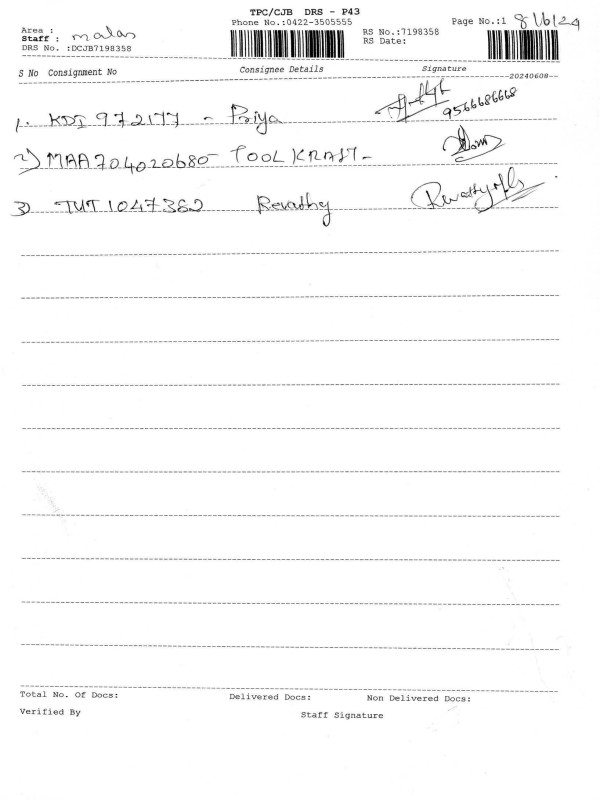 TPC/CJB DRS - P43
Phone No.:0422-3505555
Page No.:1 8/6/24
Area :
Staff : malar
RS No.:7198358
DRS No. :DCJB7198358
RS Date:
S No Consignment No Consignee Details Signature
20240608
1. KDI 972177 - Priya 9566686668
2) MAA704020680 - TOOL KRAFT -
3) TUT 1047362 Revathy
Total No. Of Docs: Delivered Docs: Non Delivered Docs:
Verified By Staff Signature